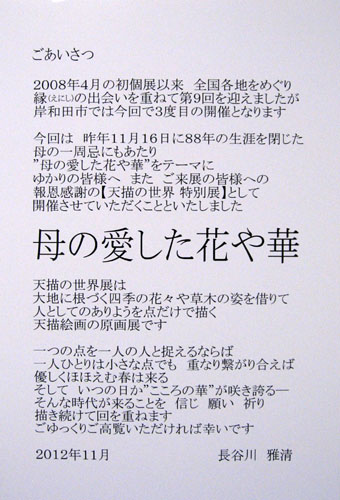 ごあいさつ
2008年4月の初個展以来 全国各地をめぐり
縁(えにし)の出会いを重ねて第9回を迎えましたが
岸和田市では今回で3度目の開催となります
今回は 昨年11月16日に88年の生涯を閉じた
母の一周忌にもあたり
"母の愛した花や華"をテーマに
ゆかりの皆様へ また ご来展の皆様への
報恩感謝の【天描の世界 特別展】として
開催させていただくことといたしました
母の愛した花や華
天描の世界展は
大地に根づく四季の花々や草木の姿を借りて
人としてのありようを点だけで描く
天描絵画の原画展です
一つの点を一人の人と捉えるならば
一人ひとりは小さな点でも 重なり繋がり合えば
優しくほほえむ春は来る
そして いつの日か"こころの華"が咲き誇る―
そんな時代が来ることを 信じ 願い 祈り
描き続けて回を重ねます
ごゆっくりご高覧いただければ幸いです
2012年11月 長谷川 雅清